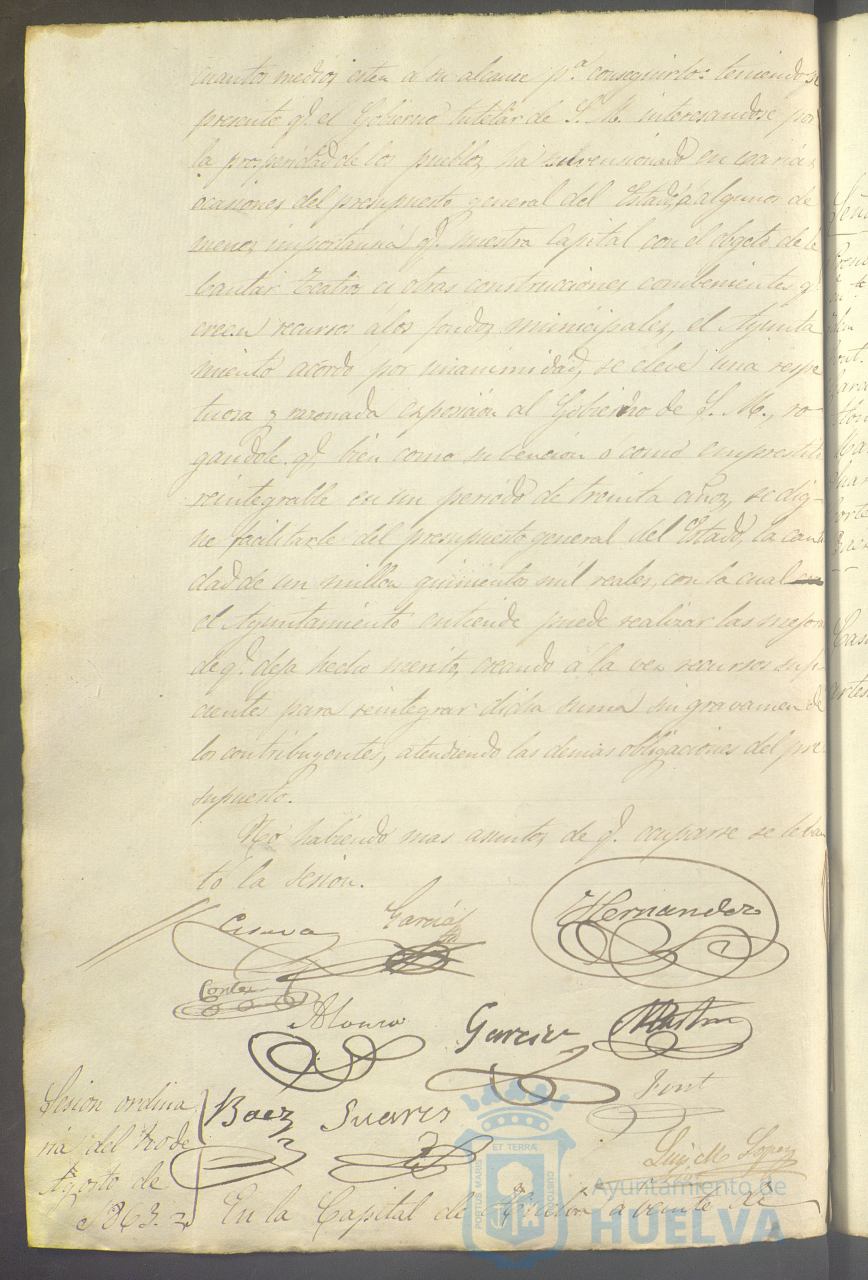 cuantos medios esten á su alcance p.ª conseguirlo: teniendose
presente q.e el Gobierno tutelar de S. M. interesandose por
la prosperidad de los pueblos, ha subvensionado en varias
ocasiones del presupuesto general del Estado, á algunos de
menos importancia q.e nuestra Capital con el obgeto de le
bantar Teatros ú otras construcciones combenientes q.e
creen recursos á los fondos municipales, el Ayunta
miento acordó por unanimidad, se eleve una respe
tuosa y razonada exposición al Gobierno de S. M., ro-
gandole q.e bien como subención ó como emprestito
reintegrable en un periodo de treinta años, se dig-
ne facilitarle del presupuesto general del Estado, la canti
dad de un millon quinientos mil reales, con la cual
el Ayuntamiento entiende puede realizar las mejoras
de q.e deja hecho merito, creando á la vez recursos sufi-
cientes para reintegrar dicha suma sin gravamen de
los contribuyentes, atendiendo las demas obligaciones del pre-
supuesto.
No habiendo mas asuntos de q.e ocuparse se leban
tó la sesion.
García
Hernandez
Cortes
Alonso
Garcia
Baez
Suarez
Font
Luis M. Lopez
Sesion ordina
ria del 20 de
Agosto de
1863.
En la Capital de á veinte de
PORTUS MARIS
ET TERRA
CUSTODIA
Ayuntamiento de
HUELVA